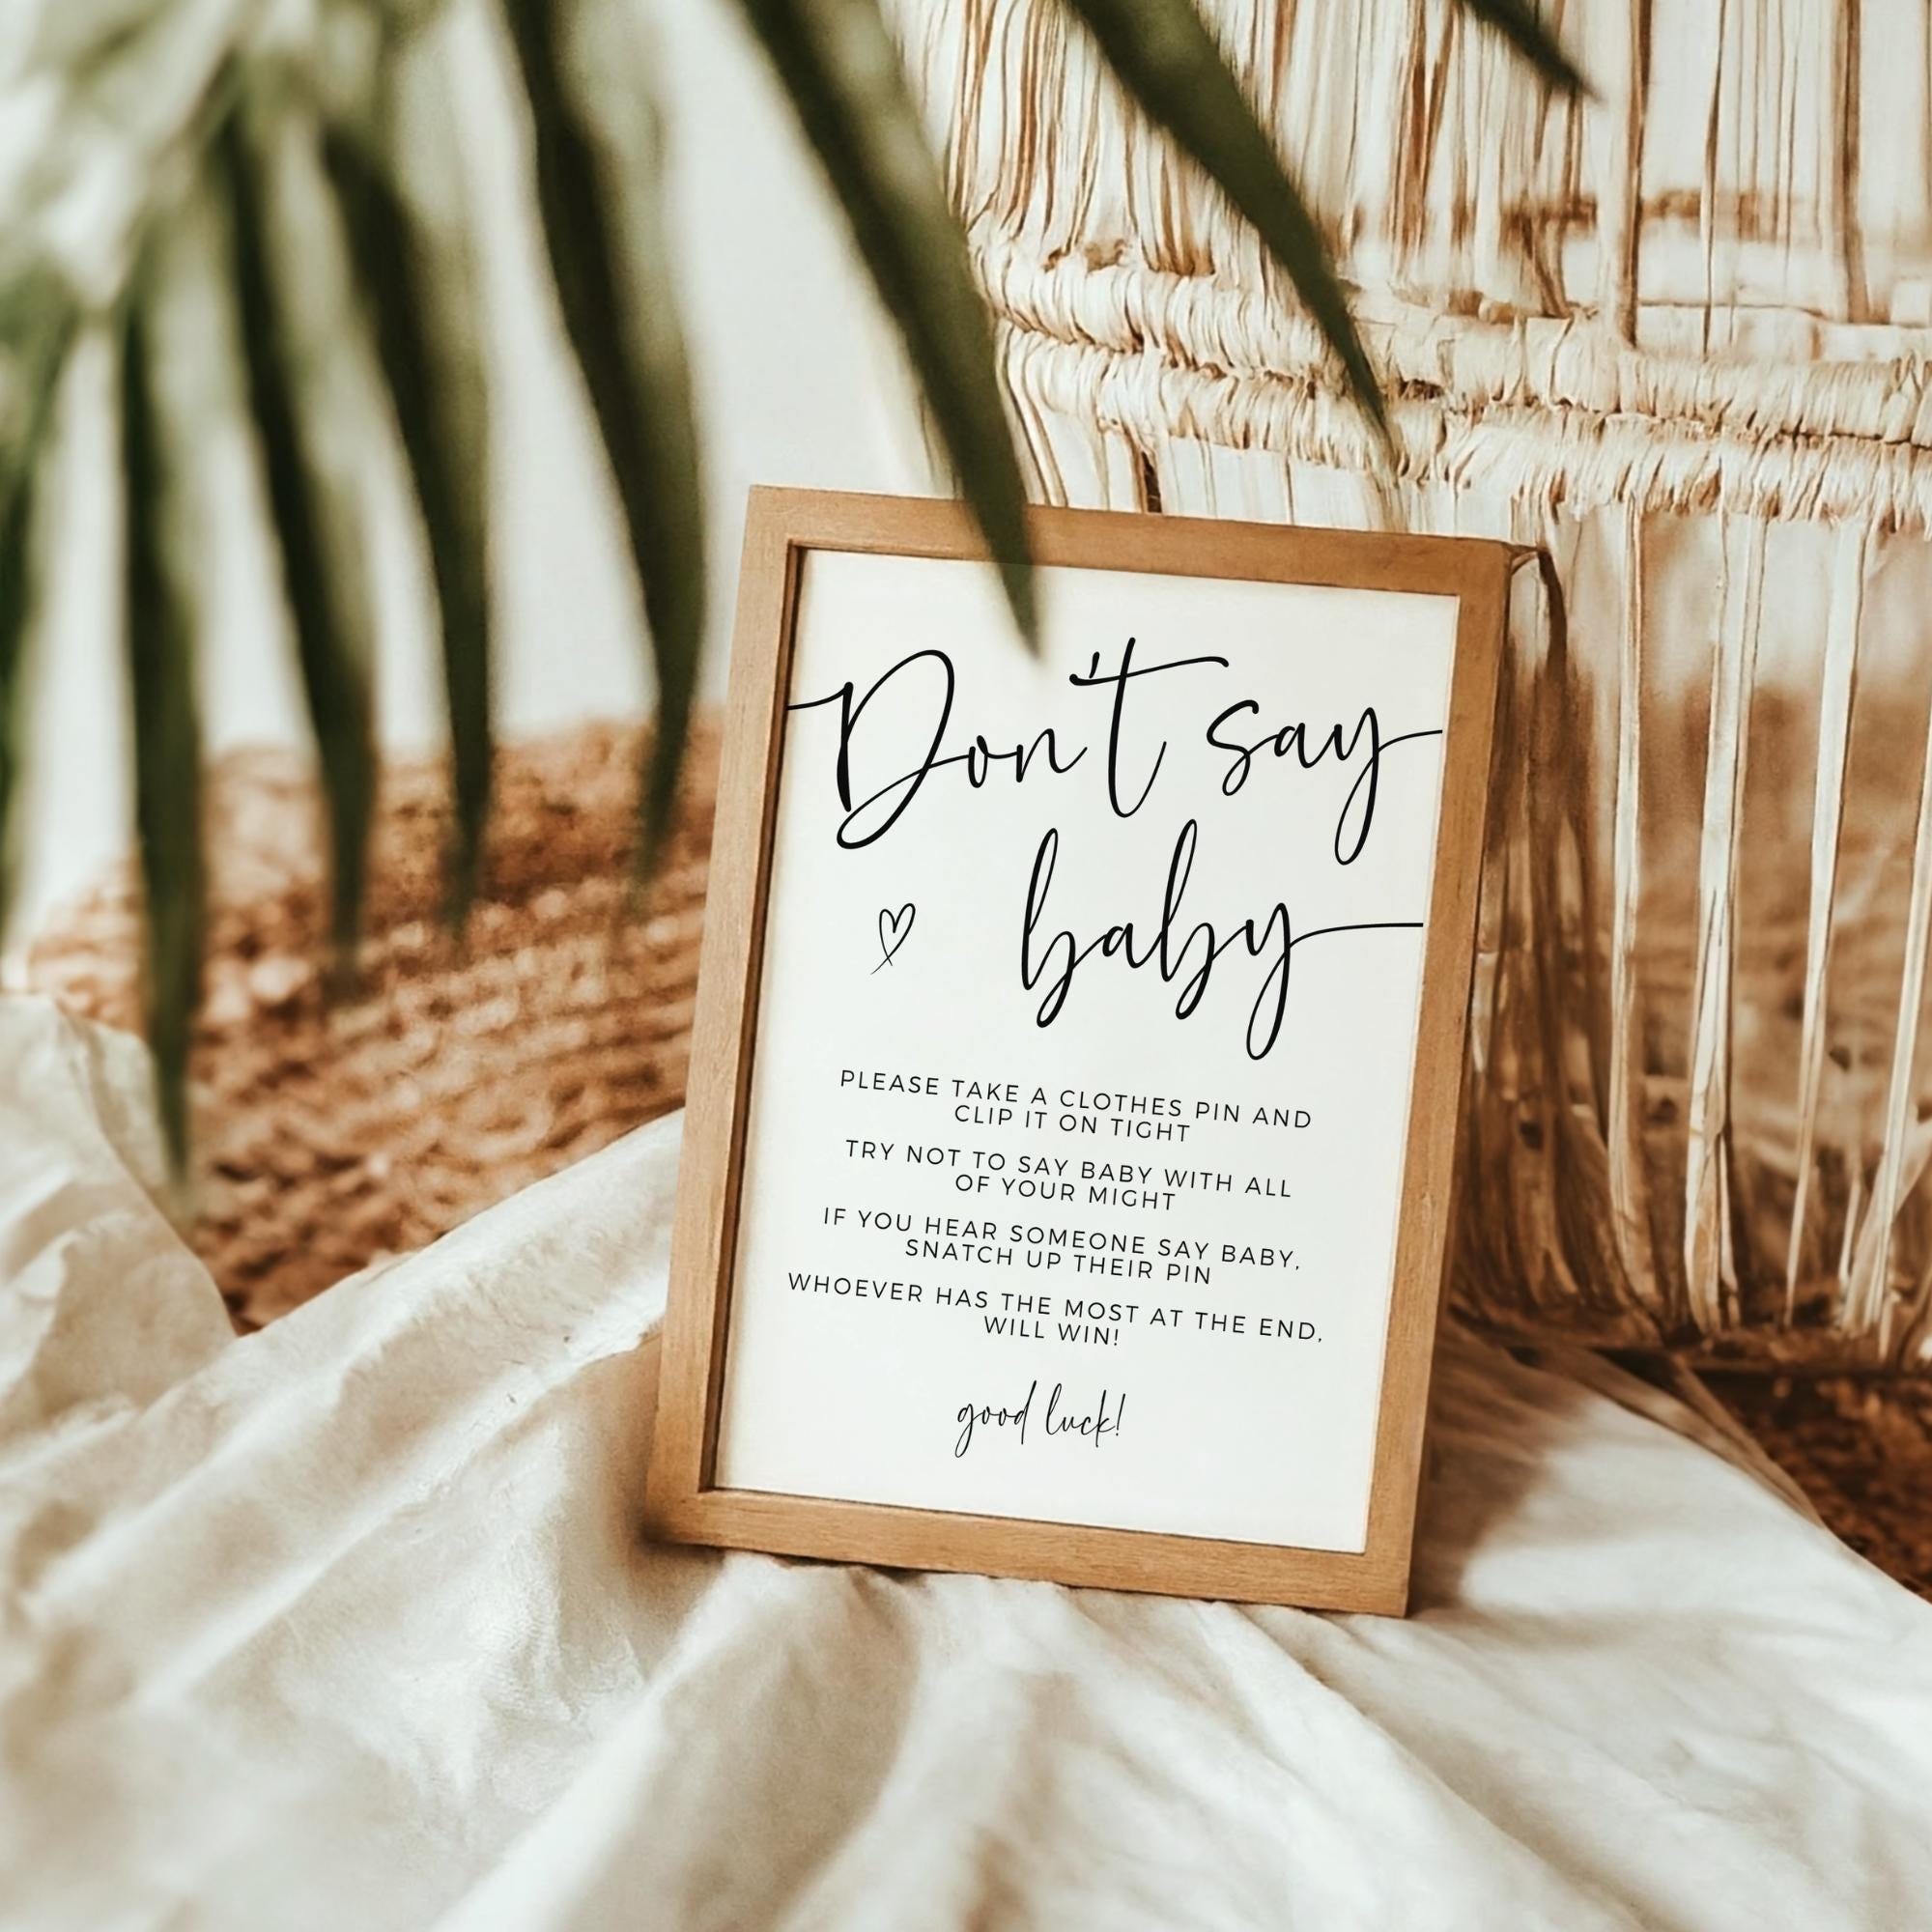 Don't say
baby
PLEASE TAKE A CLOTHES PIN AND
CLIP IT ON TIGHT
TRY NOT TO SAY BABY WITH ALL
OF YOUR MIGHT
IF YOU HEAR SOMEONE SAY BABY,
SNATCH UP THEIR PIN
WHOEVER HAS THE MOST AT THE END,
WILL WIN!
good luck!